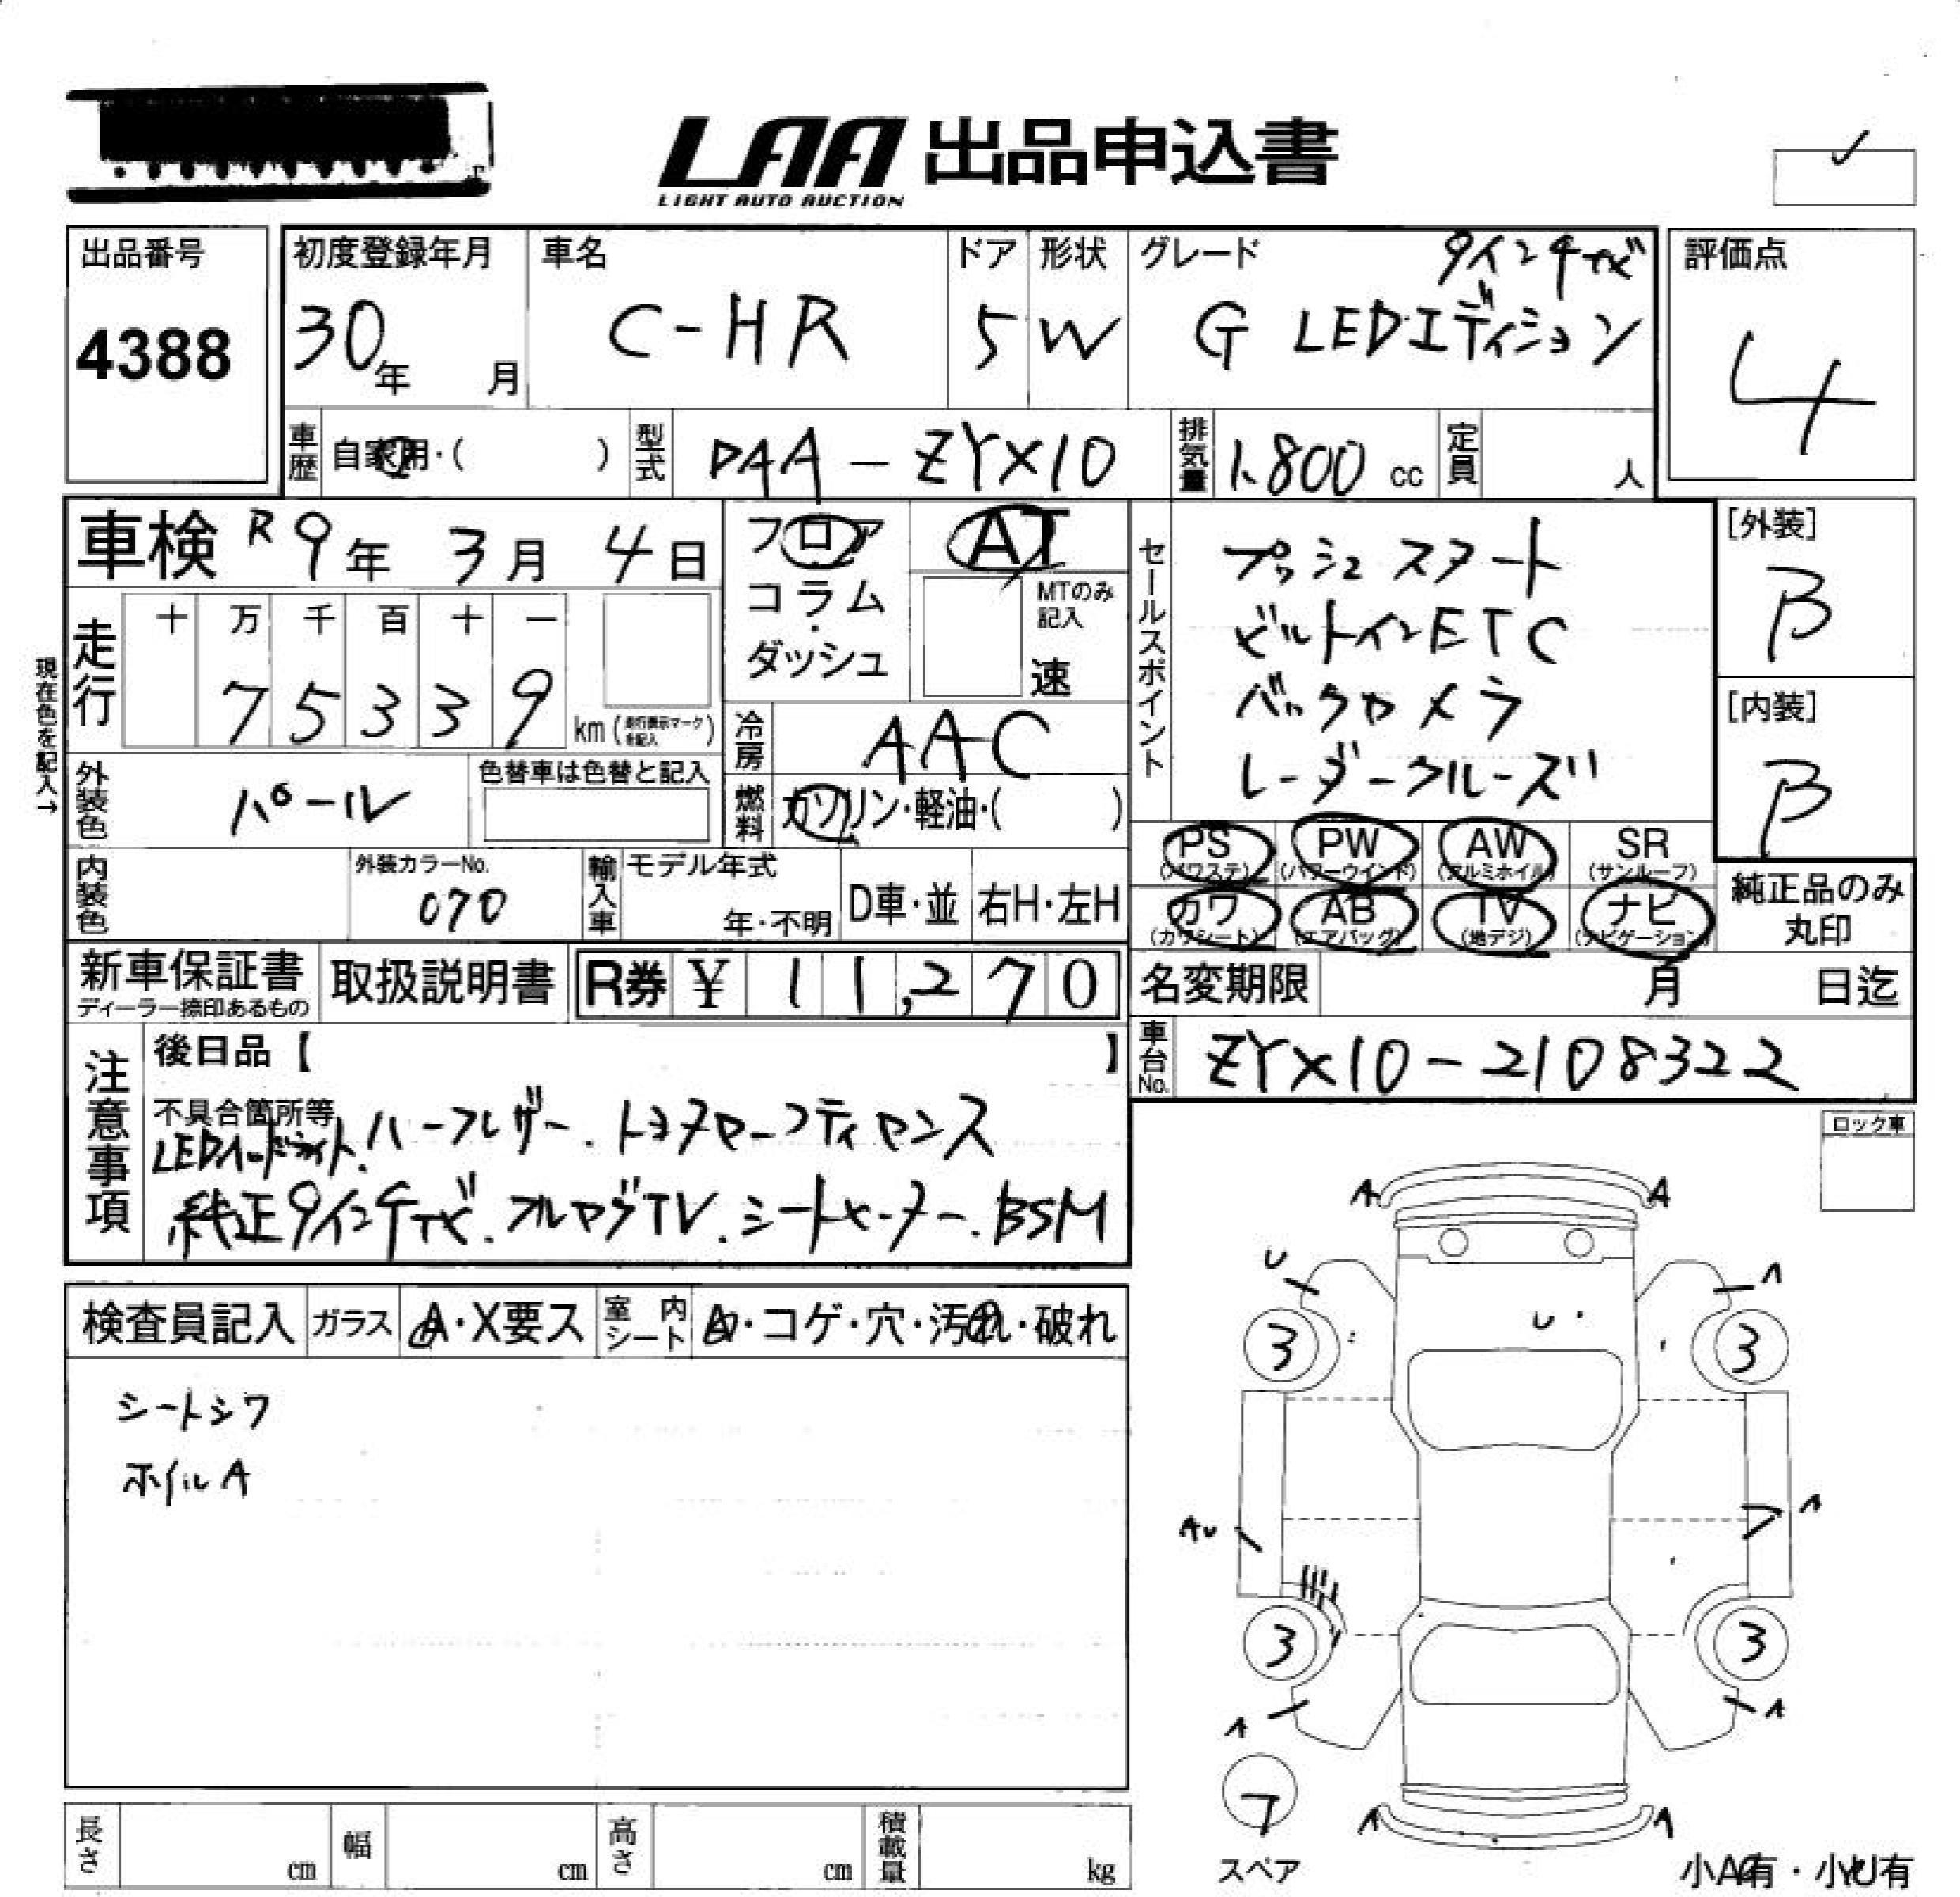 LAA 出品申込書
LIGHT AUTO AUCTION
出品番号
4388
初度登録年月
30年 月
車名
C-HR
ドア
5
形状
W
グレード
9インチナビ
G LEDエディション
評価点
4
車歴 自家用・( )
型式 DAA-ZYX10
排気量 1.800 cc
定員 人
車検 R9年 3月 4日
フロア
コラム
ダッシュ
AT
MTのみ記入
速
セールスポイント
プッシュスタート
ビルトインETC
バックカメラ
レーダークルーズ
[外装]
B
[内装]
B
現在色を記入→
走行
十 万 千 百 十 一
7 5 3 3 9
km (走行表示マークを記入)
冷房 AAC
外装色 パール
色替車は色替と記入
燃料 ガソリン・軽油・( )
PS (パワステ)
PW (パワーウインド)
AW (アルミホイル)
SR (サンルーフ)
カワ (カワシート)
AB (エアバッグ)
TV (地デジ)
ナビ (ナビゲーション)
純正品のみ
丸印
内装色
外装カラーNo.
070
輸入車
モデル年式
年・不明
D車・並
右H・左H
新車保証書
ディーラー捺印あるもの
取扱説明書
R券 ¥ 11,270
名変期限 月 日迄
車台No. ZYX10-2108322
注意事項
後日品【 】
不具合箇所等
LEDヘッドライト.ハーフレザー.トヨタセーフティセンス
純正9インチナビ.フルセグTV.シートヒーター.BSM
ロック車
検査員記入
ガラス A・X要ス
室内シート ・コゲ・穴・汚れ・破れ
シートシワ
ホイルA
A A
U A
U
3 3
AU A
3 3
A A
フ
スペア
A A
小A有・小U有
長さ cm
幅 cm
高さ cm
積載量 kg